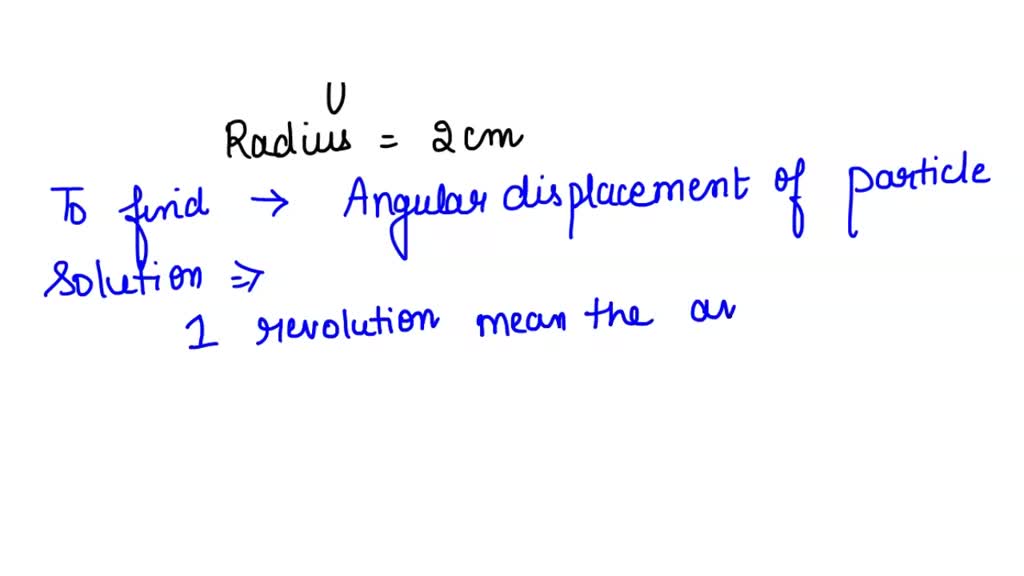 U
Radius = 2cm
To find → Angular displacement of particle
Solution ⇒
1 revolution mean the